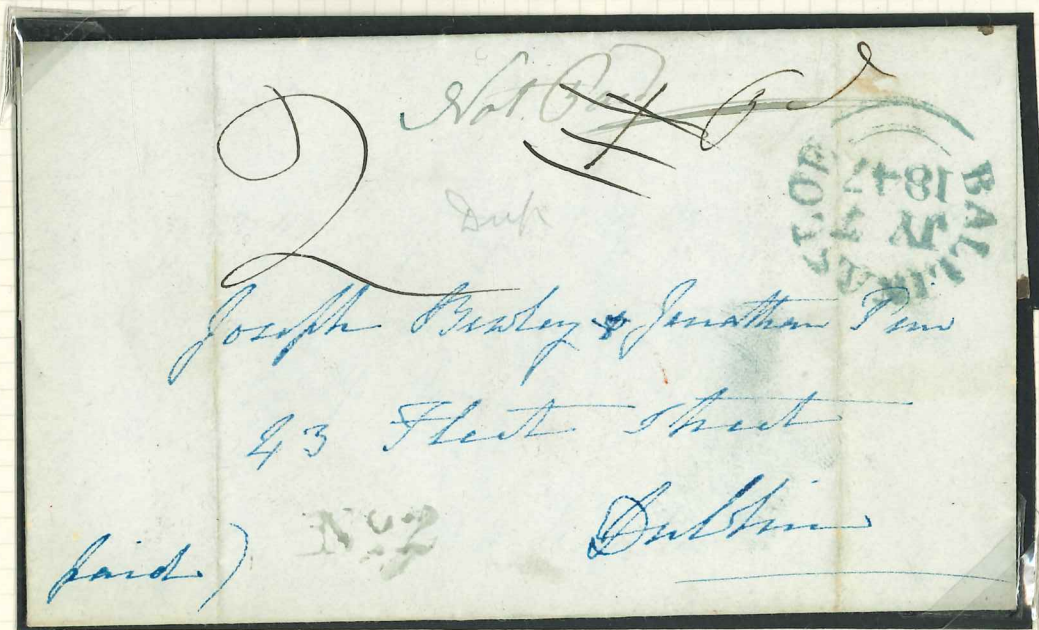 Not Paid
2
BALLINASLOE
JY 4
1847
Joseph Bewley & Jonathan Pim
43 Fleet Street
Dublin
No 2
paid)